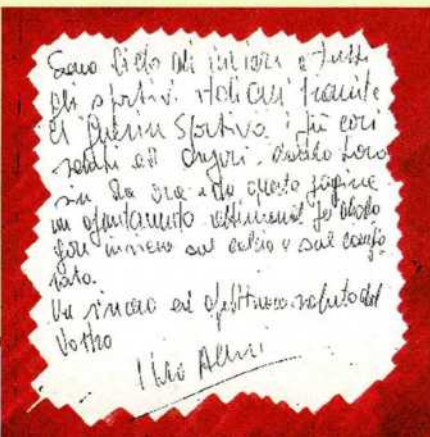 Sono lieto di inviare a tutti
gli sportivi italiani tramite
il Guerin Sportivo i più cari
saluti ed auguri. do loro
sin da ora e da queste pagine
un appuntamento settimanale per
insieme sul calcio e sul campio
nato.
Un sincero ed affettuoso saluto dal
Vostro